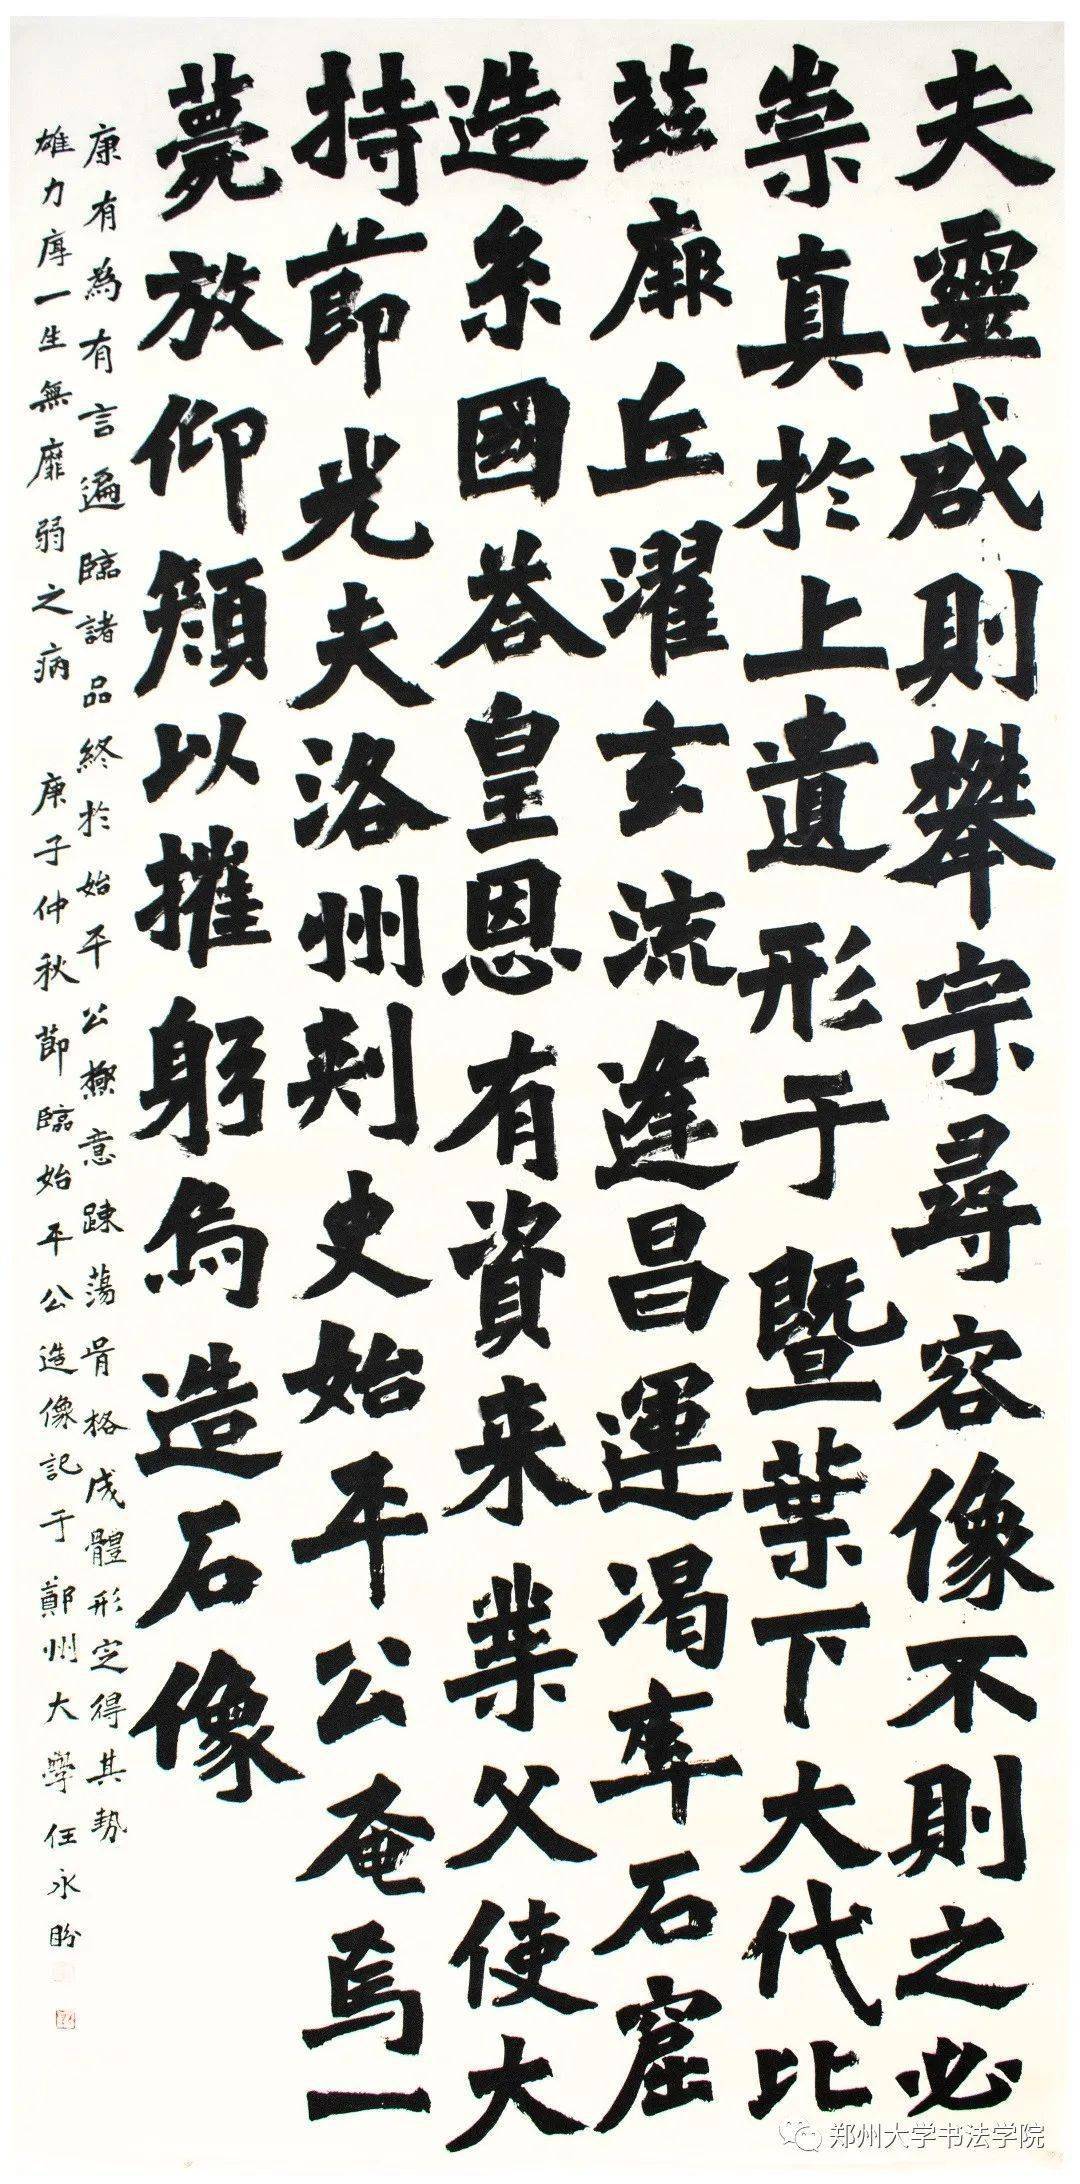 夫靈啟則攀宗尋容像不則之必
崇真於上遺形于暨葉下大代比
茲廓丘濯玄流逢昌運渴率石窟
造糸國答皇恩有資来業父使大
持節光夫洛州刾史始平公奄焉一
薨放仰顏以摧躬為造石像
康有為有言遍臨諸品終於始平公極意踈蕩骨格成體形定得其勢
雄力厚一生無靡弱之病 庚子仲秋 節臨始平公造像記于鄭州大學任永盼
郑州大学书法学院